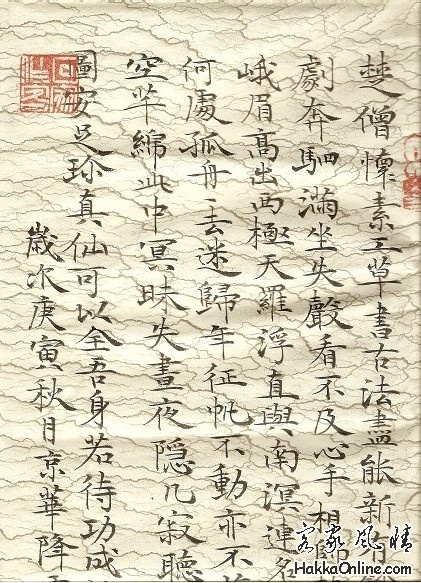 楚僧懷素工草書古法盡能新
劇奔駟滿坐失聲看不及心手相師
峨眉高出西極天羅浮直與南溟連名
何處孤舟一去迷歸年征帆不動亦不
空芊綿此中冥昧失晝夜隱几寂聽
圖安足珍真仙可以全吾身若待功成
歲次庚寅秋月京華降
客家風情
HakkaOnline.com